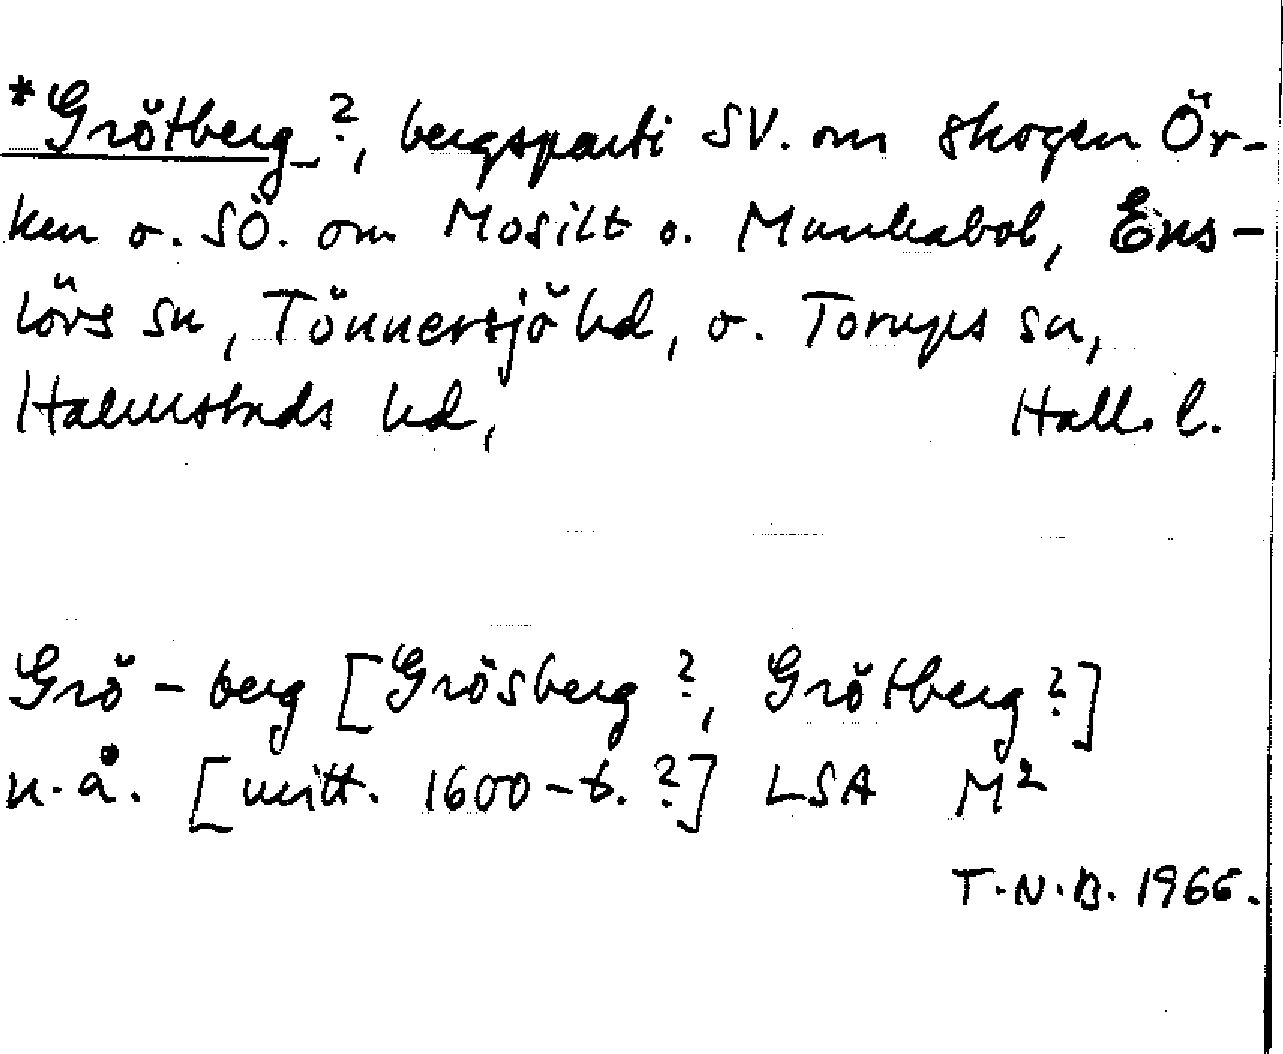 *Grötberg ?, bergsparti SV. om skogen Ör-
ken o. SÖ. om Mosilt o. Munkabol, Ens-
lövs sn, Tönnersjö hd, o. Torups sn,
Halmstads hd, Hall. l.
Grö - berg [Grösberg ?, Grötberg ?]
u.å. [mitt. 1600-t. ?] LSA M²
T.N.B. 1966.